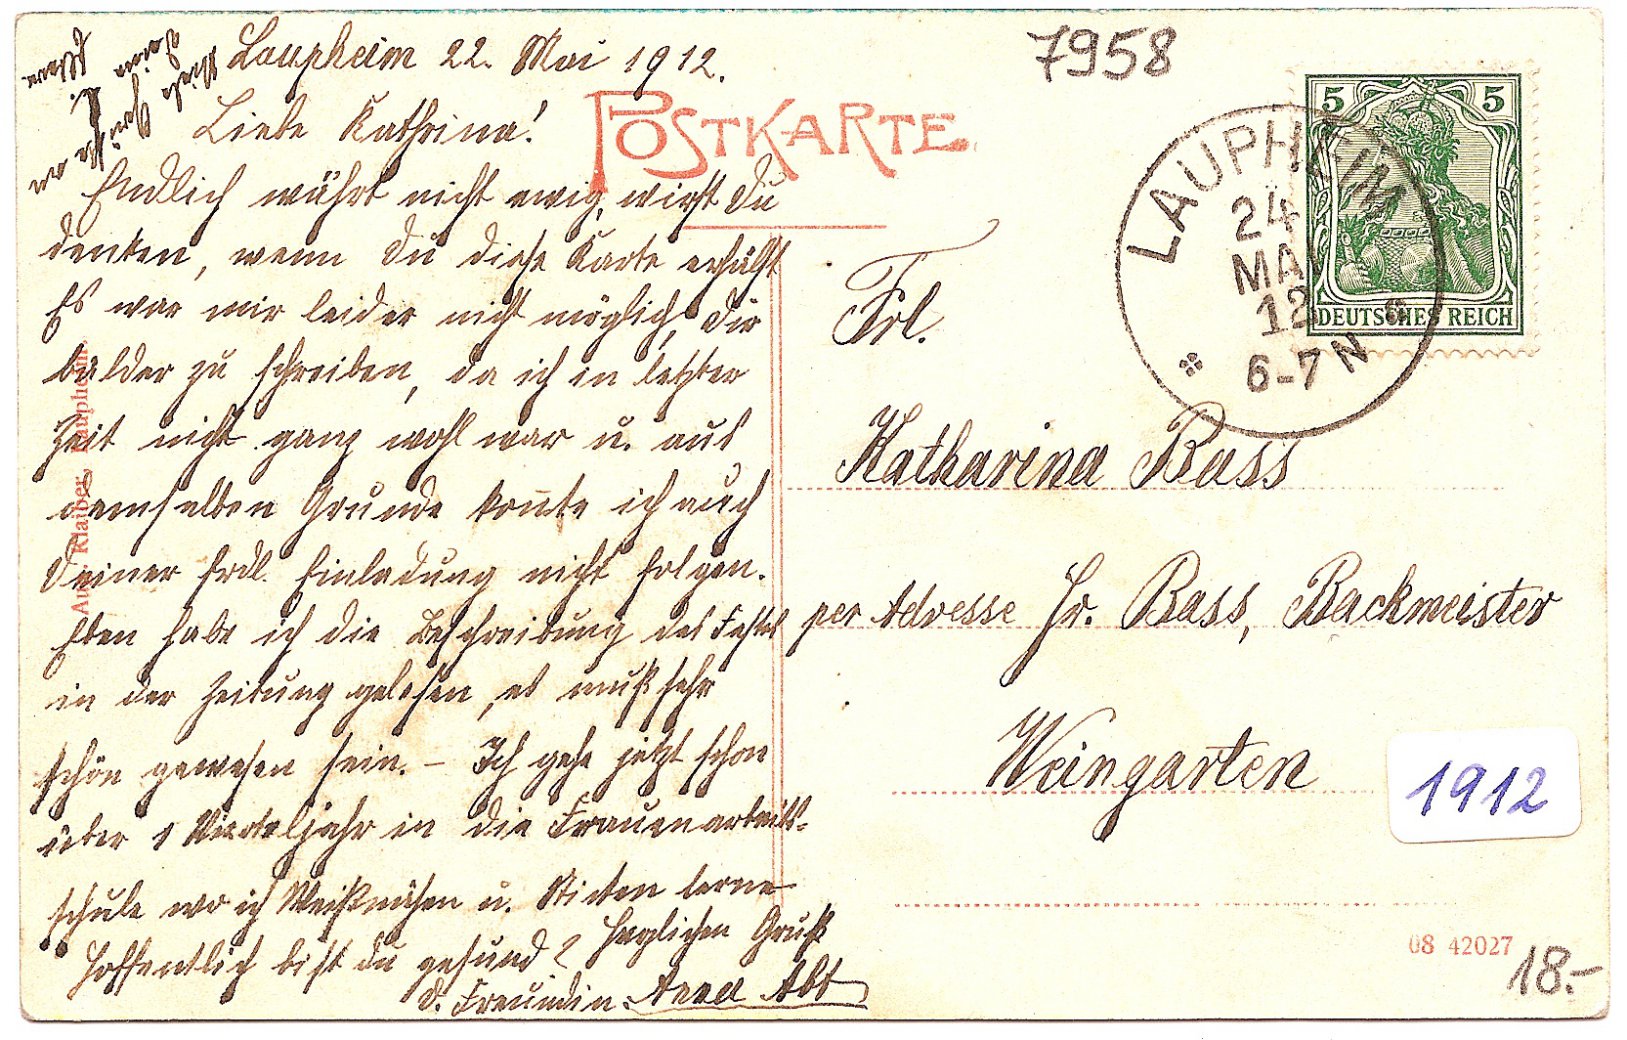 Laupheim 22. Mai 1912.
Liebe Kathrina!
Endlich währt nicht ewig, wirst Du
denken, wenn Du diese Karte erhälst
Es war mir leider nicht möglich, Dir
bälder zu schreiben, da ich in letzter
Zeit nicht ganz wohl war u. aus
demselben Grunde konnte ich auch
Deiner frdl. Einladung nicht folgen.
Eben habe ich die Beschreibung des Festes
in der Zeitung gelesen, es muß sehr
schön gewesen sein. – Ich gehe jetzt schon
über 1 Vierteljahr in die Frauenarbeits-
schule wo ich Weißnähen u. Sticken lerne
Hoffentlich bist du gesund? Herzlichen Gruß
d. Freundin Anna Abt
Viele Grüße an
Deine l.
Eltern
POSTKARTE
7958
LAUPHEIM
24
MAI
12
6-7 N
5 5
DEUTSCHES REICH
Frl.
Katharina Bass
per Adresse Hr. Bass, Backmeister
Weingarten
1912
08 42027
18.-
Klaiber, Laupheim.